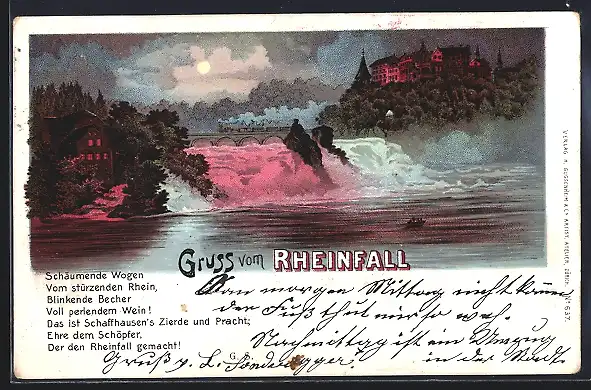 Gruss vom RHEINFALL
Schäumende Wogen
Vom stürzenden Rhein,
Blinkende Becher
Voll perlendem Wein!
Das ist Schaffhausen's Zierde und Pracht;
Ehre dem Schöpfer,
Der den Rheinfall gemacht!
G. S.
Kann morgen Mittag nicht kommen
der Fuß thut mir so weh.
Nachmittag ist ein Umzug
in der Stadt.
Gruß v. L.
VERLAG H. GUGGENHEIM & Co ARTIST. ATELIER, ZÜRICH. No 637.